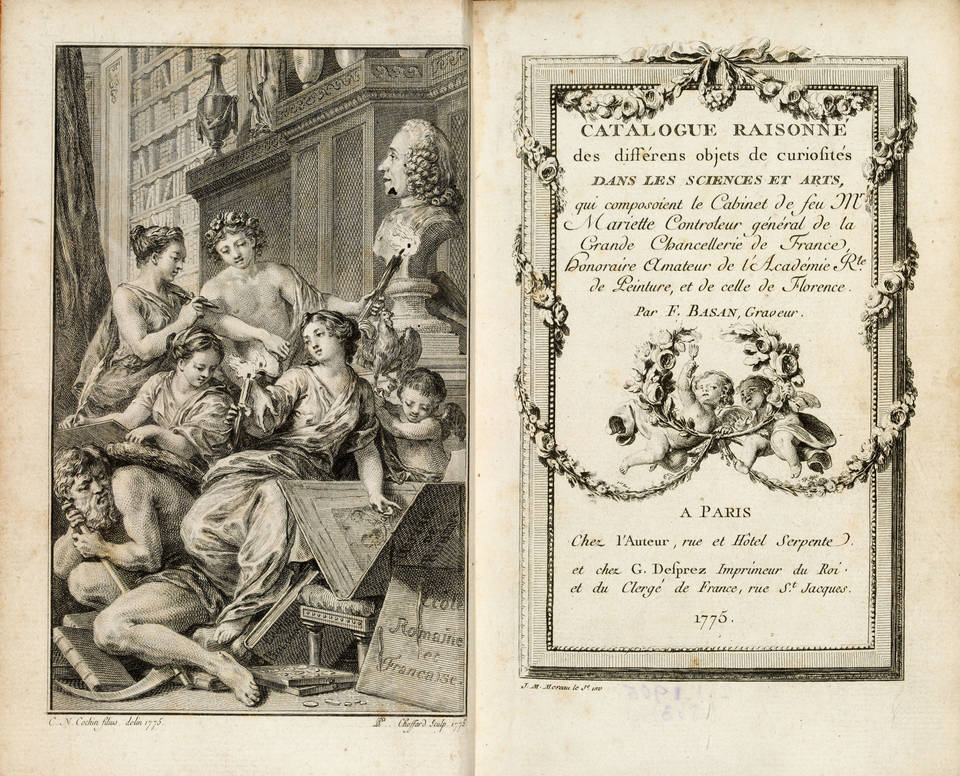 École
Romaine
et
Francaise.
C. N. Cochin filius delin 1775.
PP. Choffard Sculp. 1775
CATALOGUE RAISONNÉ
des différens objets de curiosités
DANS LES SCIENCES ET ARTS,
qui composoient le Cabinet de feu Mr
Mariette Controleur général de la
Grande Chancellerie de France,
Honoraire Amateur de l'Académie Rle.
de Peinture, et de celle de Florence.
Par F. BASAN, Graveur.
A PARIS
Chez l'Auteur, rue et Hôtel Serpente.
et chez G. Desprez Imprimeur du Roi.
et du Clergé de France, rue St. Jacques.
1775.
J. M. Moreau le Je. inv